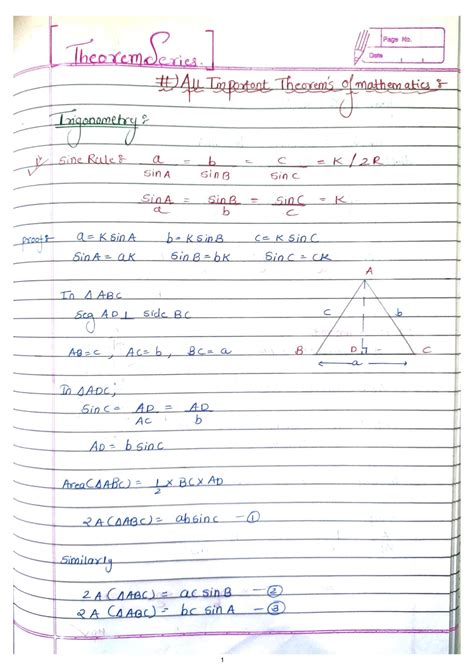 Page No.
Date
[Theorem Series.]
#) All Important Theorem's of mathematics :
Trigonometry :
Sine Rule : a/sin A = b/sin B = c/sin C = K / 2R
sin A/a = sin B/b = sin C/c = K
proof : a = K sin A b = K sin B c = K sin C
sin A = aK sin B = bK sin C = cK
In △ABC
seg AD ⊥ side BC
AB = c, AC = b, BC = a
A
c b
B D C
a
In △ADC,
sin C = AD/AC = AD/b
AD = b sin C
Area(△ABC) = 1/2 × BC × AD
2A(△ABC) = ab sin C - ①
Similarly
2A(△ABC) = ac sin B - ②
2A(△ABC) = bc sin A - ③
1